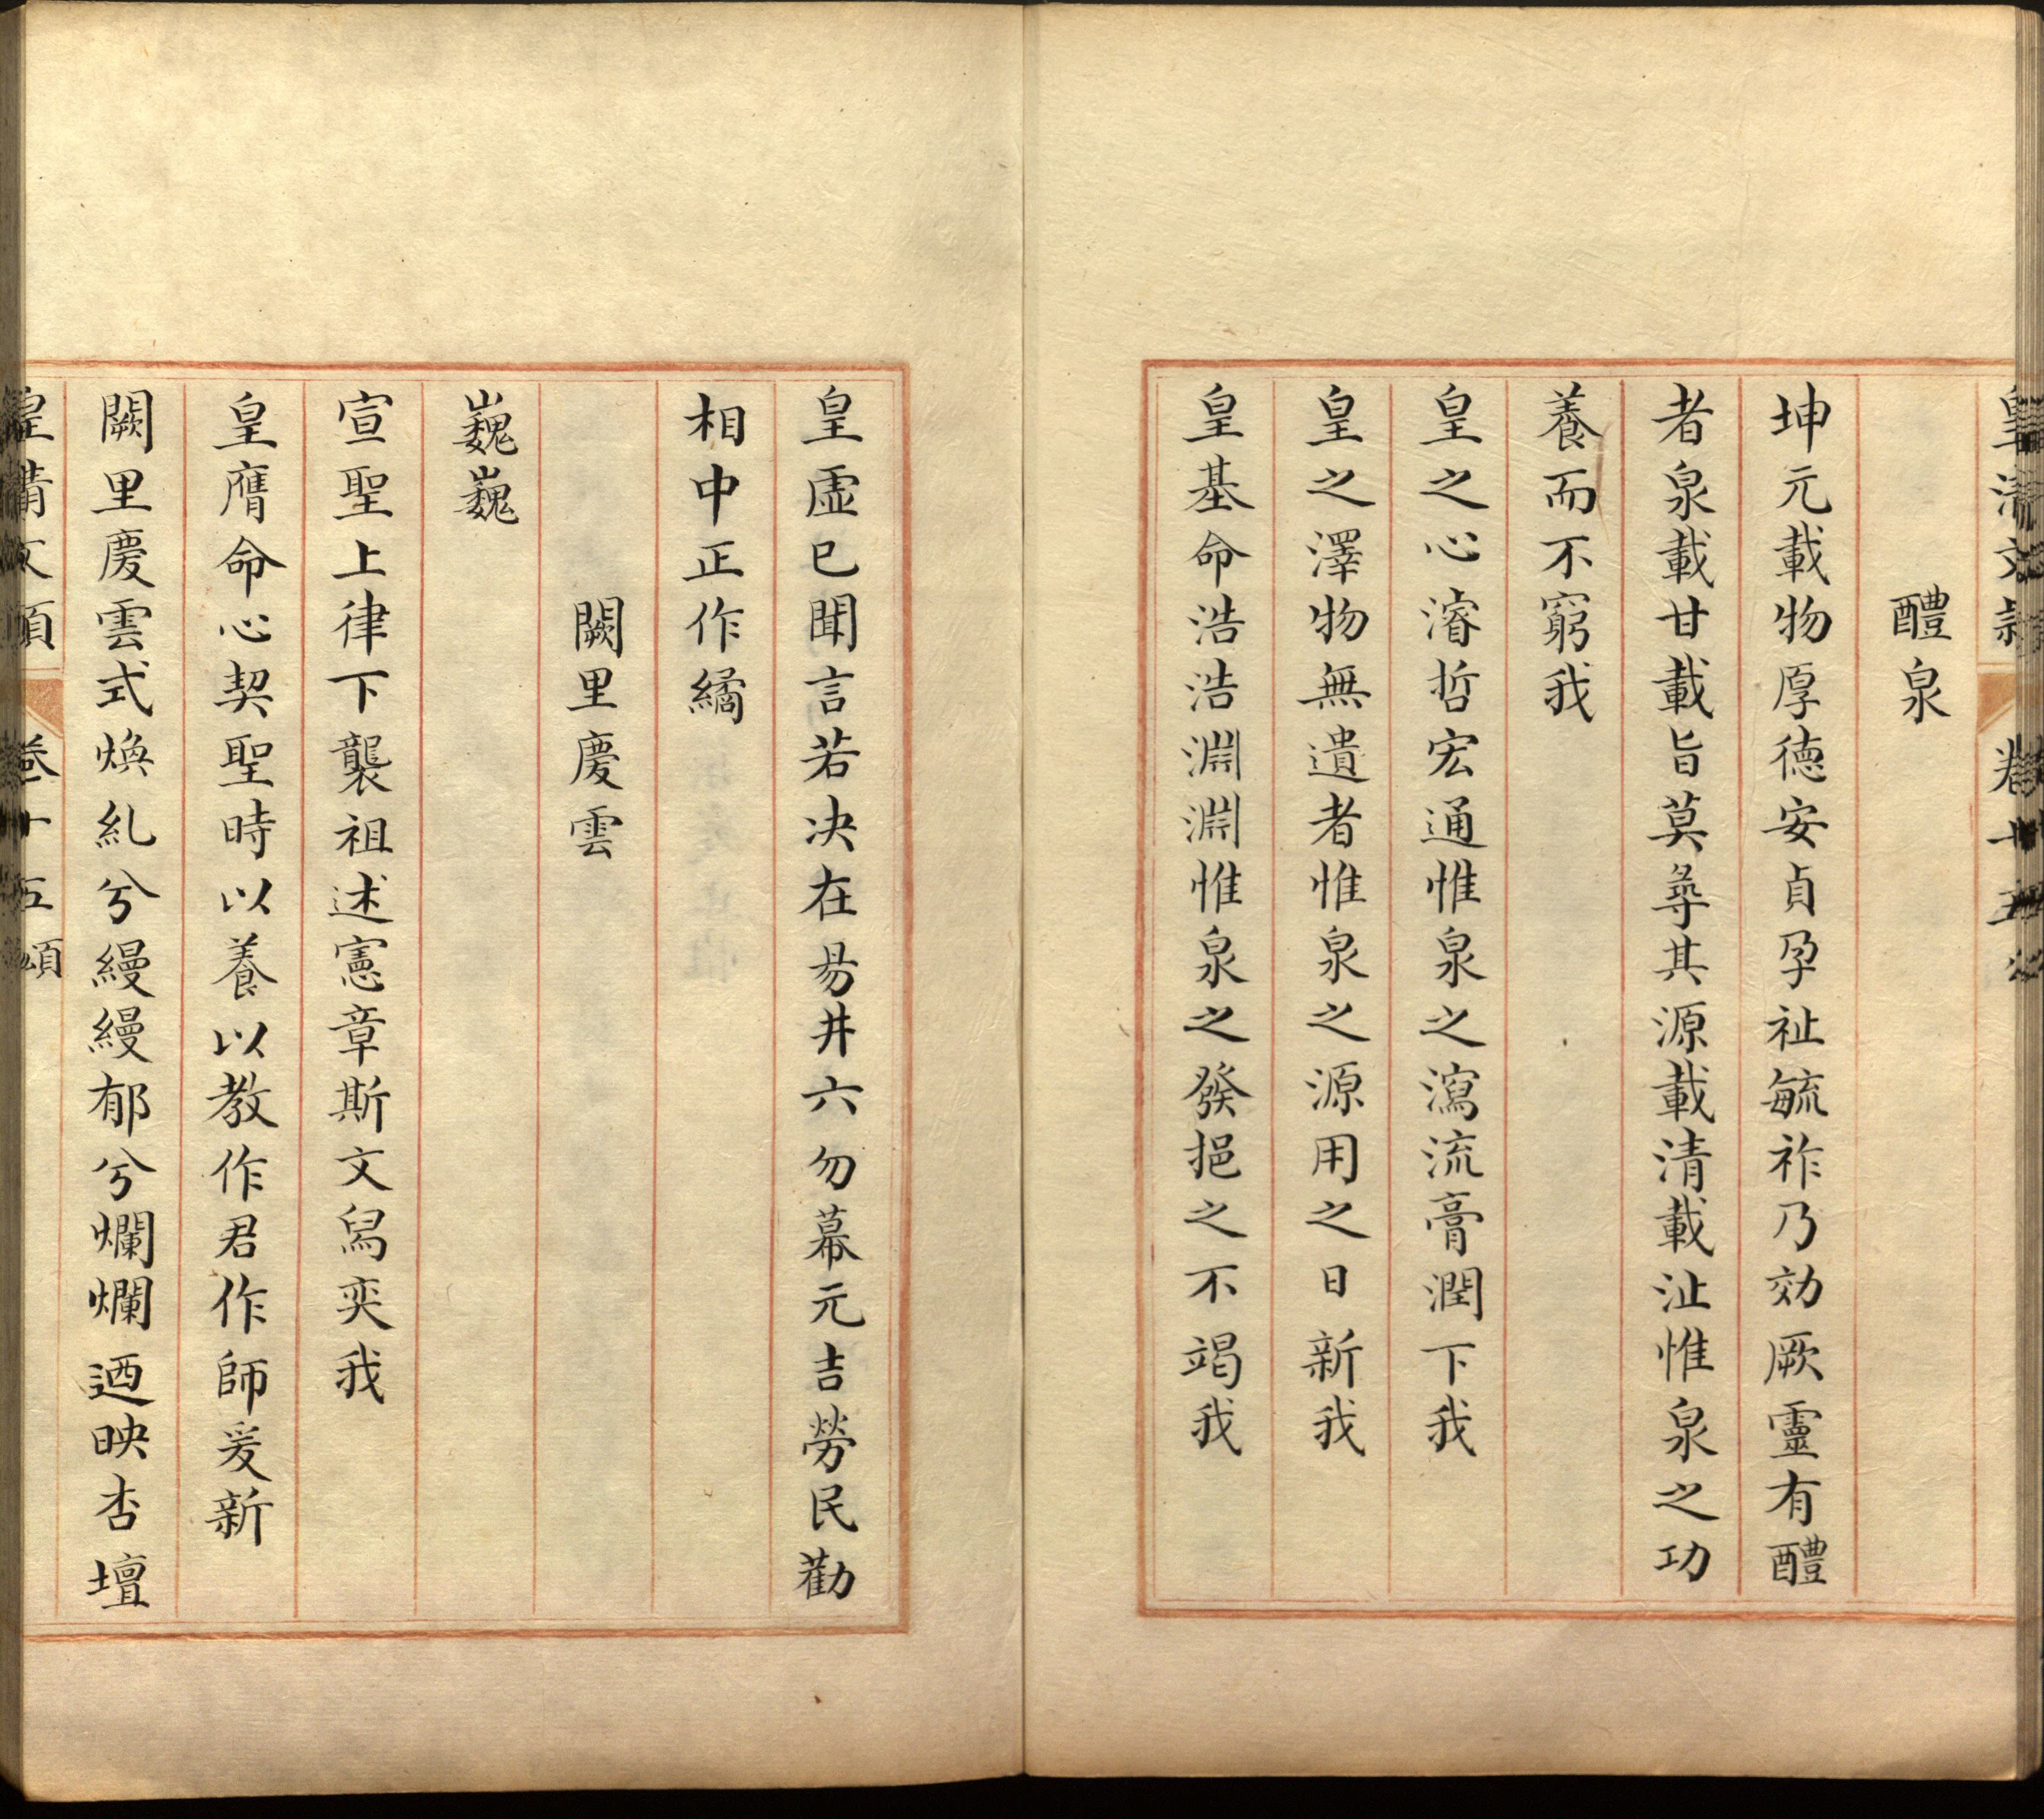 皇清文穎 卷十五
醴泉
坤元載物厚德安貞孕祉毓祚乃効厥靈有醴
者泉載甘載旨莫尋其源載清載沚惟泉之功
養而不窮我
皇之心濬哲宏通惟泉之瀉流膏潤下我
皇之澤物無遺者惟泉之源用之日新我
皇基命浩浩淵淵惟泉之發挹之不竭我
皇虛已聞言若决在易井六勿幕元吉勞民勸
相中正作繘
闕里慶雲
巍巍
宣聖上律下襲祖述憲章斯文舄奕我
皇膺命心契聖時以養以教作君作師爰新
闕里慶雲式煥糺兮縵縵郁兮爛爛迺映杏壇
皇清文穎 卷十五頌